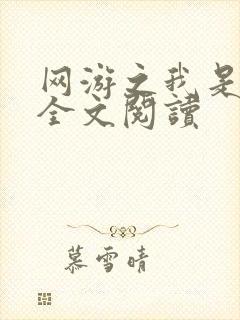 网游之我是
全文閱讀
慕雪晴